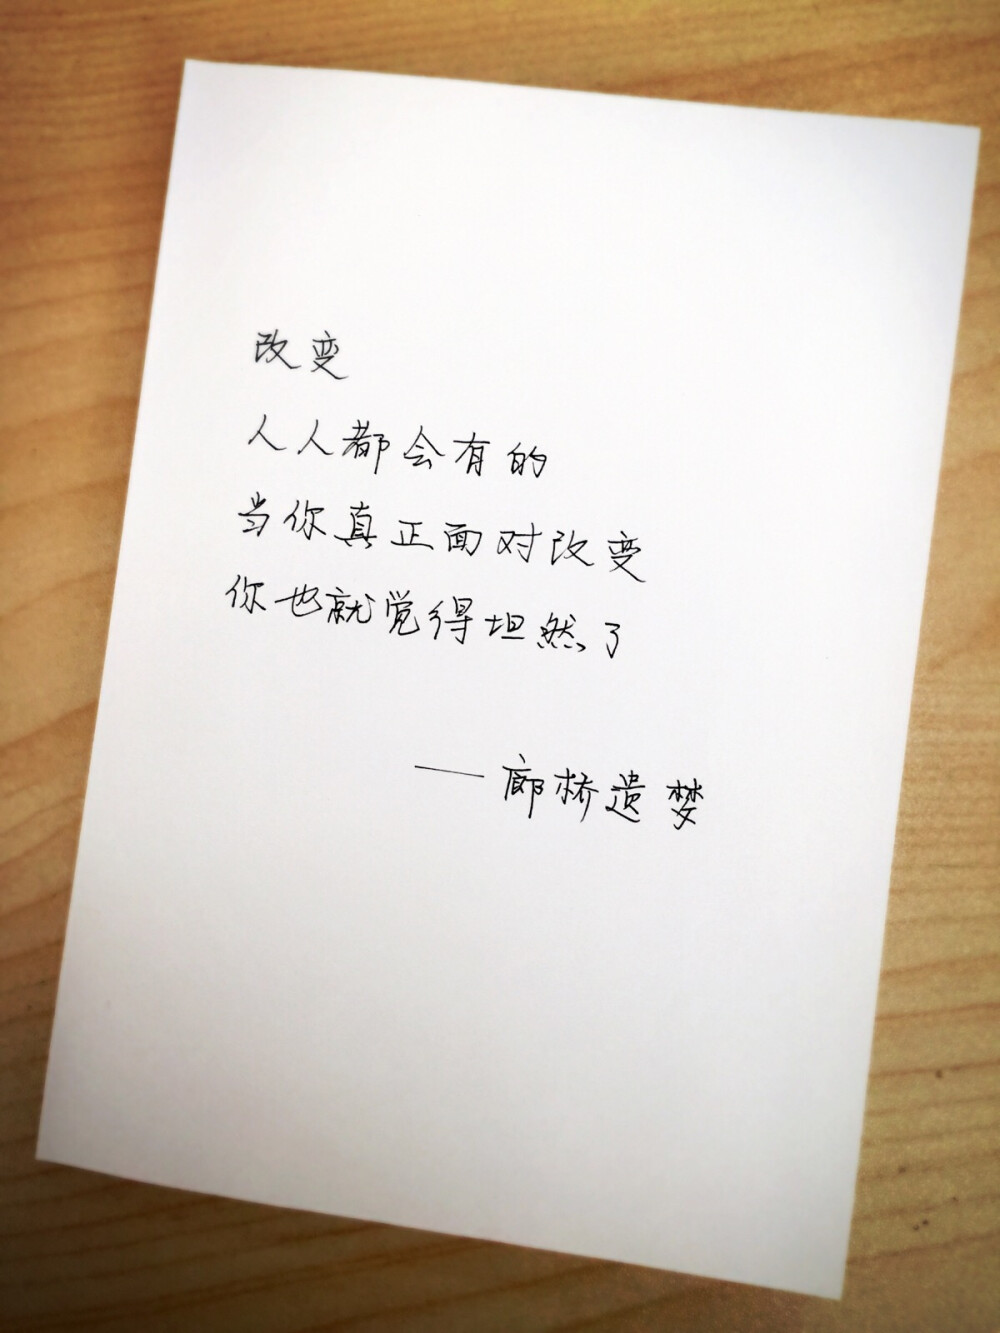 改变
人人都会有的
当你真正面对改变
你也就觉得坦然了
——廊桥遗梦